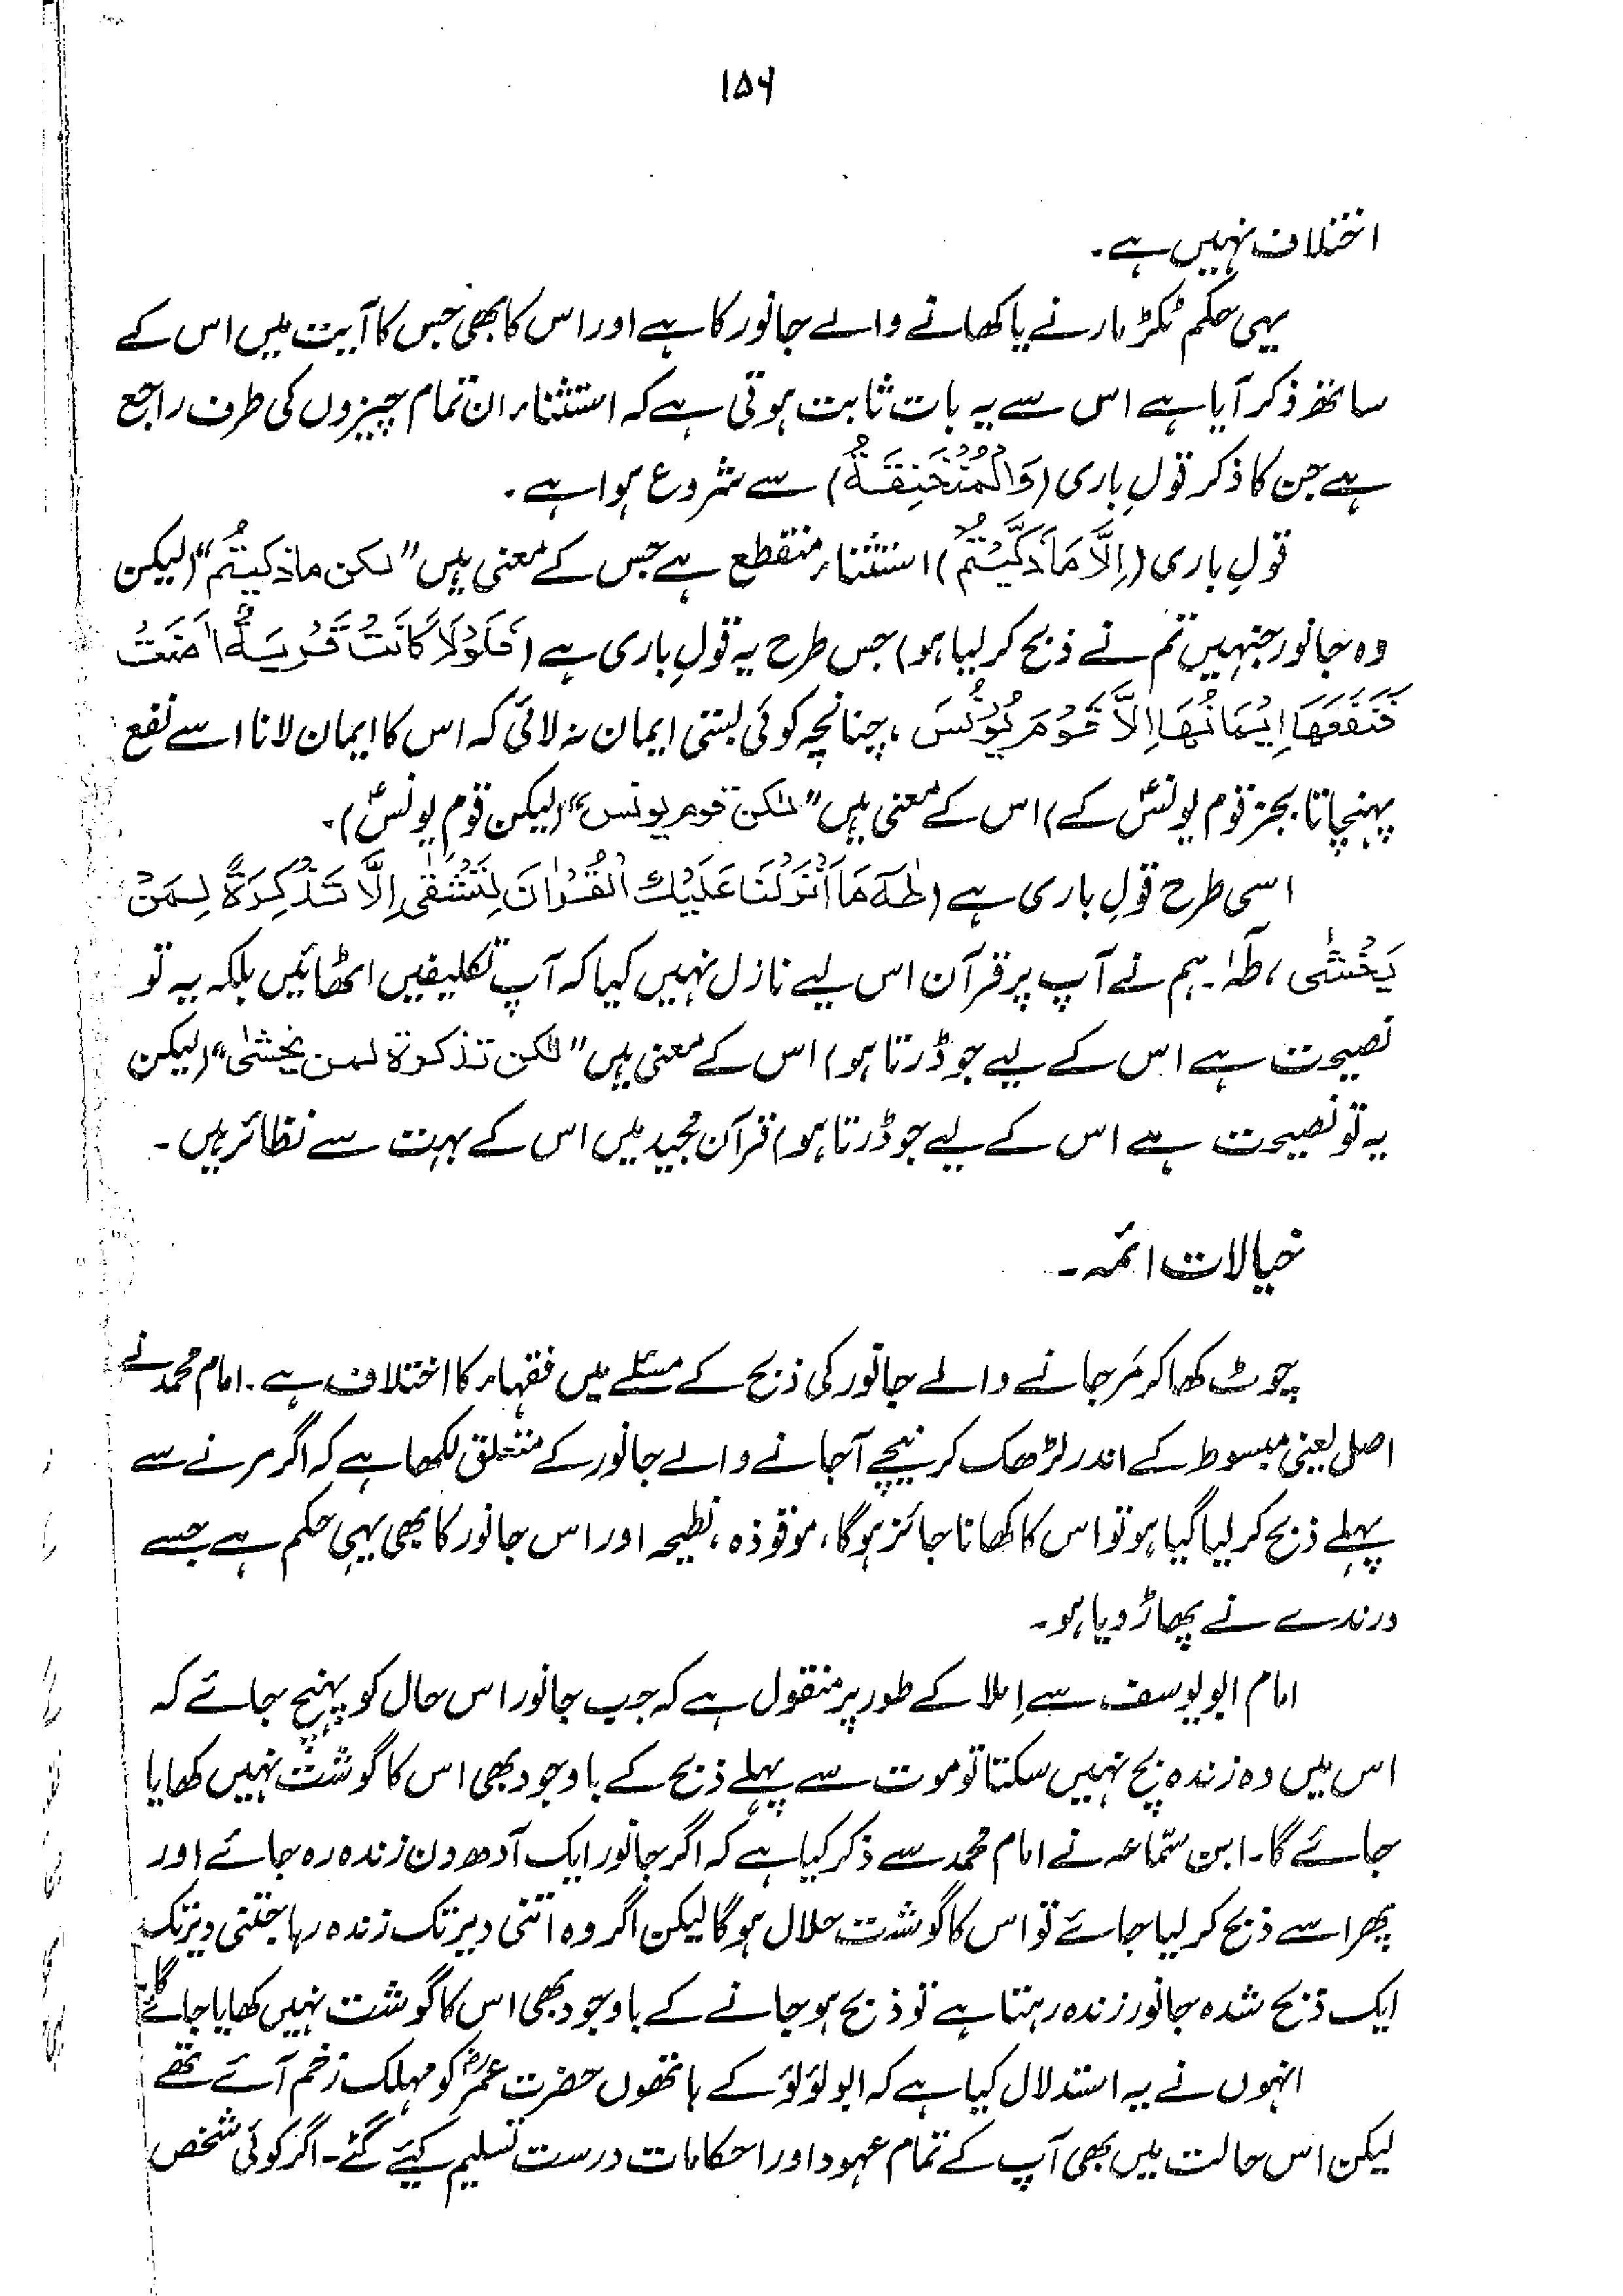 ۱۵۶
اختلاف نہیں ہے۔
یہی حکم ٹکڑ مارنے یا کھانے والے جانور کا ہے اور اس کا بھی جس کا آیت میں اس کے
ساتھ ذکر آیا ہے اس سے یہ بات ثابت ہوتی ہے کہ استثناء ان تمام چیزوں کی طرف راجع
ہے جن کا ذکر قولِ باری (وَالْمُنْخَنِقَةُ) سے شروع ہوا ہے۔
قولِ باری (اِلَّا مَا ذَكَّيْتُمْ) استثناء منقطع ہے جس کے معنی ہیں "لکن ماذکیتُم" (لیکن
وہ جانور جنہیں تم نے ذبح کر لیا ہو) جس طرح یہ قولِ باری ہے (فَلَوْلَا كَانَتْ قَرْيَةٌ اٰمَنَتْ
فَنَفَعَهَا اِيْمَانُهَا اِلَّا قَوْمَ يُوْنُسَ، چنانچہ کوئی بستی ایمان نہ لائی کہ اس کا ایمان لانا اسے نفع
پہنچاتا بجز قوم یونسؑ کے) اس کے معنی ہیں "لٰکن قوم یونس" (لیکن قوم یونسؑ)۔
اسی طرح قولِ باری ہے (طٰهٰ مَا اَنْزَلْنَا عَلَيْكَ الْقُرْاٰنَ لِتَشْقٰى اِلَّا تَذْكِرَةً لِّمَنْ
يَخْشٰى، طٰہٰ۔ ہم نے آپ پر قرآن اس لیے نازل نہیں کیا کہ آپ تکلیفیں اٹھائیں بلکہ یہ تو
نصیحت ہے اس کے لیے جو ڈرتا ہو) اس کے معنی ہیں "لٰکن تذکرة لمن یخشیٰ" (لیکن
یہ تو نصیحت ہے اس کے لیے جو ڈرتا ہو) قرآن مجید میں اس کے بہت سے نظائر ہیں۔
خیالات ائمہ۔
چوٹ کھا کر مَر جانے والے جانور کی ذبح کے مسئلے میں فقہاء کا اختلاف ہے۔ امام محمد نے
اصل یعنی مبسوط کے اندر لڑھک کر نیچے آجانے والے جانور کے متعلق لکھا ہے کہ اگر مرنے سے
پہلے ذبح کر لیا گیا ہو تو اس کا کھانا جائز ہوگا، موقوذہ، نطیحہ اور اس جانور کا بھی یہی حکم ہے جسے
درندے نے پھاڑ دیا ہو۔
امام ابو یوسف سے اِملا کے طور پر منقول ہے کہ جب جانور اس حال کو پہنچ جائے کہ
اس میں وہ زندہ بچ نہیں سکتا تو موت سے پہلے ذبح کے باوجود بھی اس کا گوشت نہیں کھایا
جائے گا۔ ابن سَمّاعہ نے امام محمد سے ذکر کیا ہے کہ اگر جانور ایک آدھ دن زندہ رہ جائے اور
پھر اسے ذبح کر لیا جائے تو اس کا گوشت حلال ہوگا لیکن اگر وہ اتنی دیر تک زندہ رہا جتنی دیر تک
ایک ذبح شدہ جانور زندہ رہتا ہے تو ذبح ہو جانے کے باوجود بھی اس کا گوشت نہیں کھایا جائے گا
انہوں نے یہ استدلال کیا ہے کہ ابولؤلؤ کے ہاتھوں حضرت عمرؓ کو مہلک زخم آئے تھے
لیکن اس حالت میں بھی آپ کے تمام عہود اور احکامات درست تسلیم کیئے گئے۔ اگر کوئی شخص